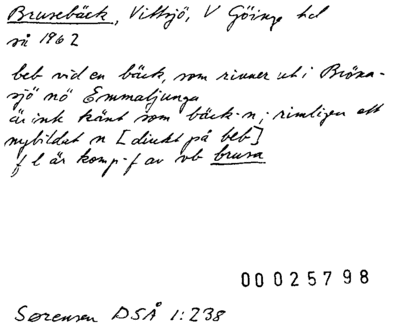 Brusebäck, Vittsjö, V Göinge hd
si 1962
beb vid en bäck, som rinner ut i Bröna-
sjö nö Emmaljunga
är ink känt som bäck-n; rimligen ett
nybildat n [direkt på beb]
f l är komp-f av vb brusa
00025798
Sørensen DSÅ 1:238